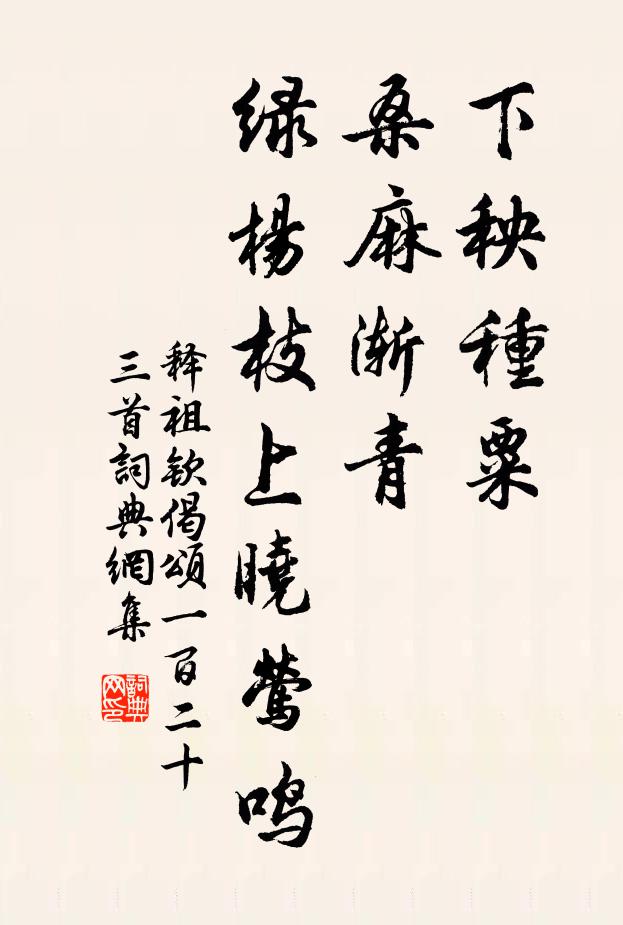 下秧種粟
桑麻渐青
绿楊枝上曉鶯鸣
释祖钦偈頌一百二十
三首詞典網集
詞典
网印